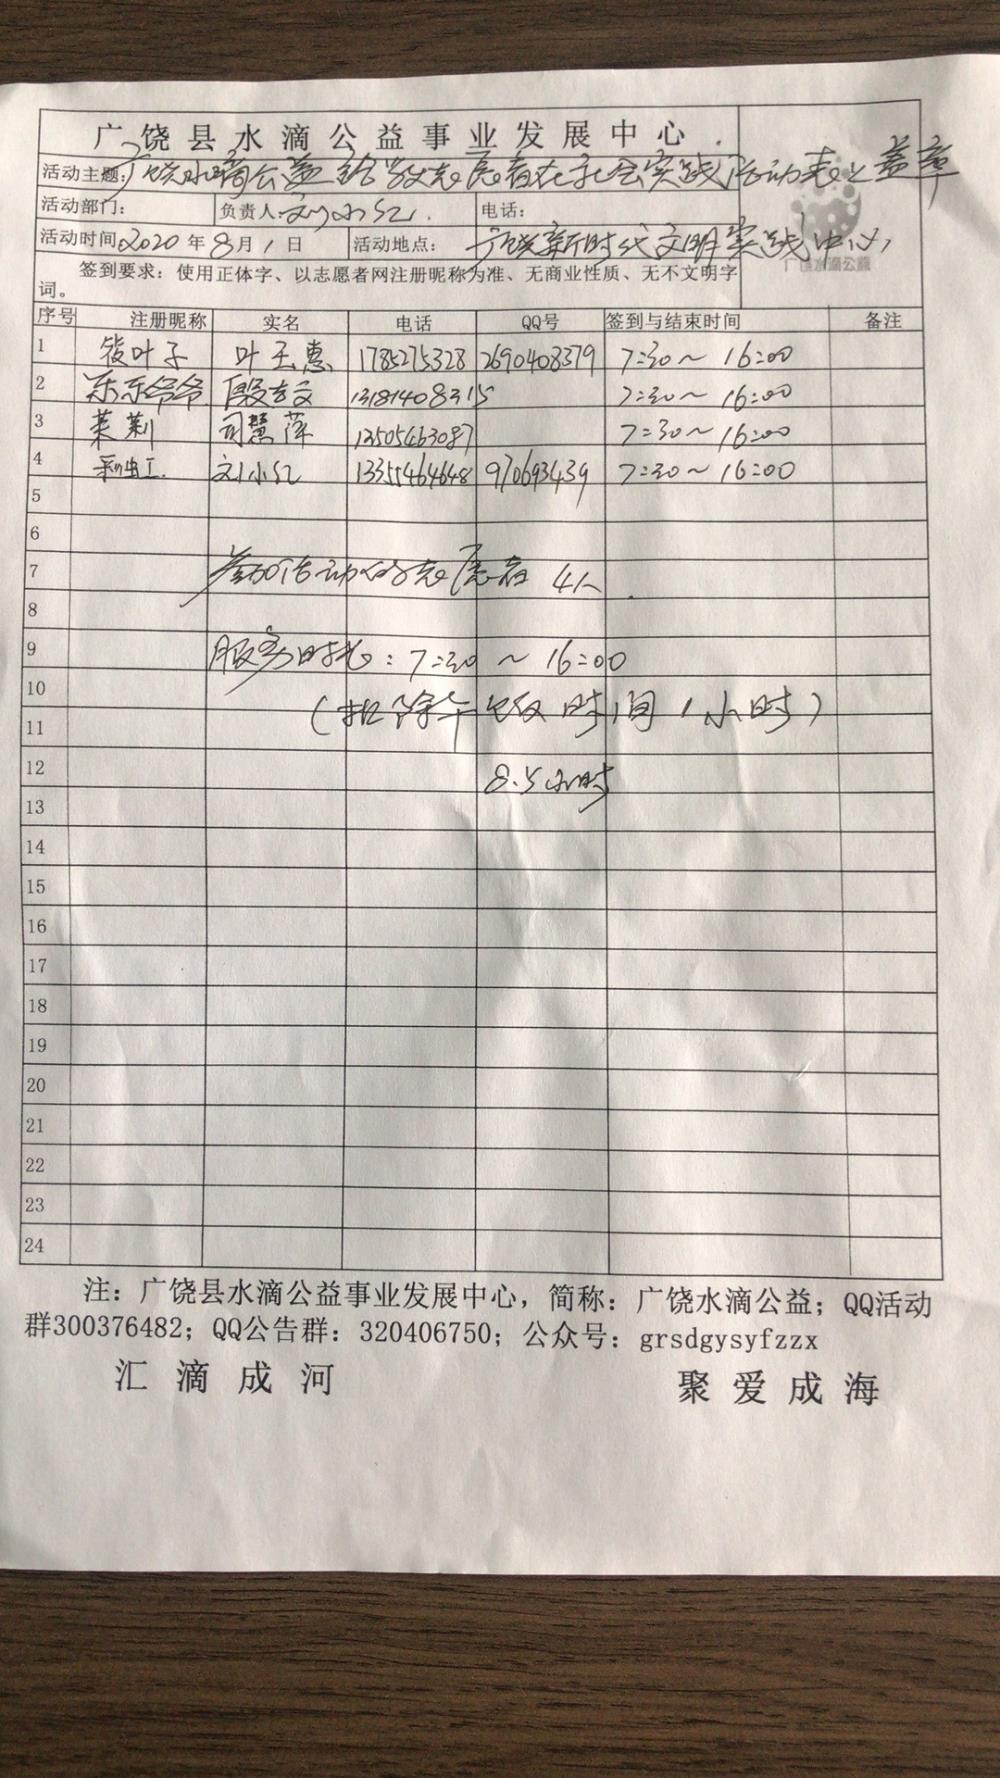 广饶县水滴公益事业发展中心
活动主题:广饶水滴公益给学生志愿者在社会实践活动表上盖章
活动部门: 负责人:刘小红. 电话:
活动时间2020年8月1日 活动地点: 广饶新时代文明实践中心
广饶水滴公益
签到要求：使用正体字、以志愿者网注册昵称为准、无商业性质、无不文明字
词。
序号 注册昵称 实名 电话 QQ号 签到与结束时间 备注
1 筱叶子 叶玉惠 1785275328 2690408379 7:30～16:00
2 乐乐爷爷 13181408315 7:30～16:00
3 茉莉 司慧萍 13505463087 7:30～16:00
4 刘小红 13355464648 970693439 7:30～16:00
5
6
7 参加活动的志愿者 4人
8
9 服务时长：7:30～16:00
10 (扣除午饭时间1小时)
11
12 8.5小时
13
14
15
16
17
18
19
20
21
22
23
24
注：广饶县水滴公益事业发展中心，简称：广饶水滴公益；QQ活动
群300376482；QQ公告群：320406750；公众号：grsdgysyfzzx
汇滴成河 聚爱成海